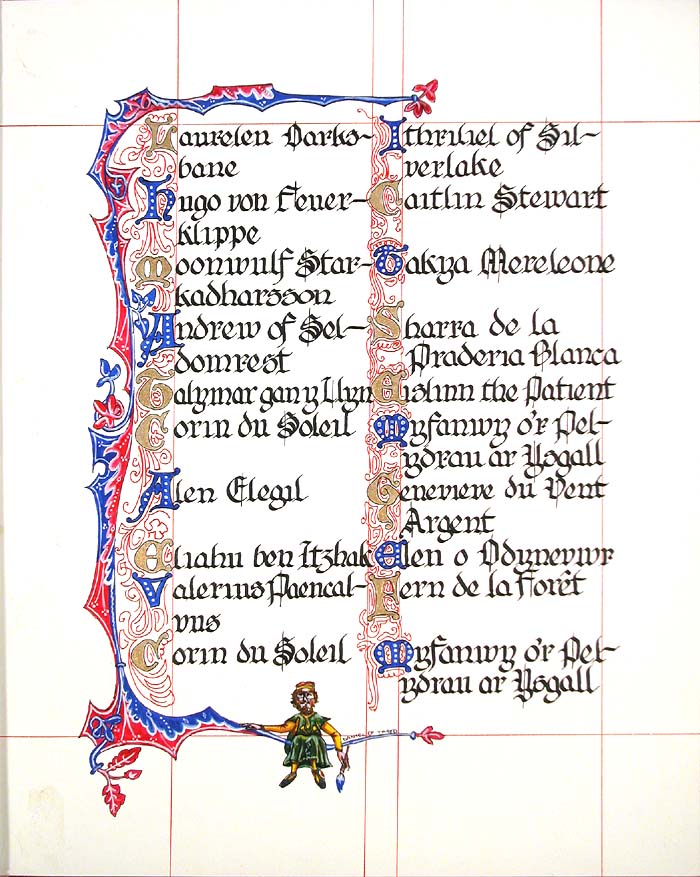 Laurelen Darks-
bane
Hugo von Feuer-
klippe
Moonwulf Star-
kadharsson
Andrew of Sel-
domrest
Talymar gan y Llyn
Corin du Soleil
Alen Elegil
Eliahu ben Itzhak
Valerius Paencal-
vus
Corin du Soleil
Ithriliel of Sil-
verlake
Caitlin Stewart
Takya Mereleone
Sharra de la
Praderia Blanca
Aislinn the Patient
Myfanwy o'r Pel-
ydrau ar Ysgall
Genevieve du Vent
Argent
Elen o Ddynevwr
Fern de la Forêt
Myfanwy o'r Pel-
ydrau ar Ysgall